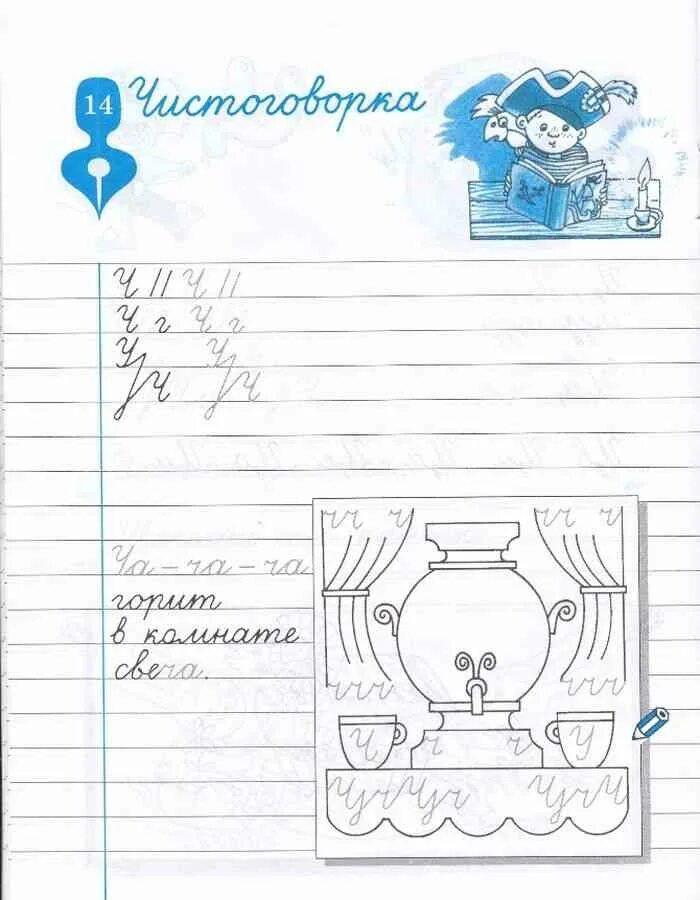 14 Чистоговорка
Ч // Ч //
Ч г Ч г
У У
Ч Ч
Ча – ча – ча
горит
в комнате
свеча.
чч ч чч ч
ччч чч
Ч ч ч У